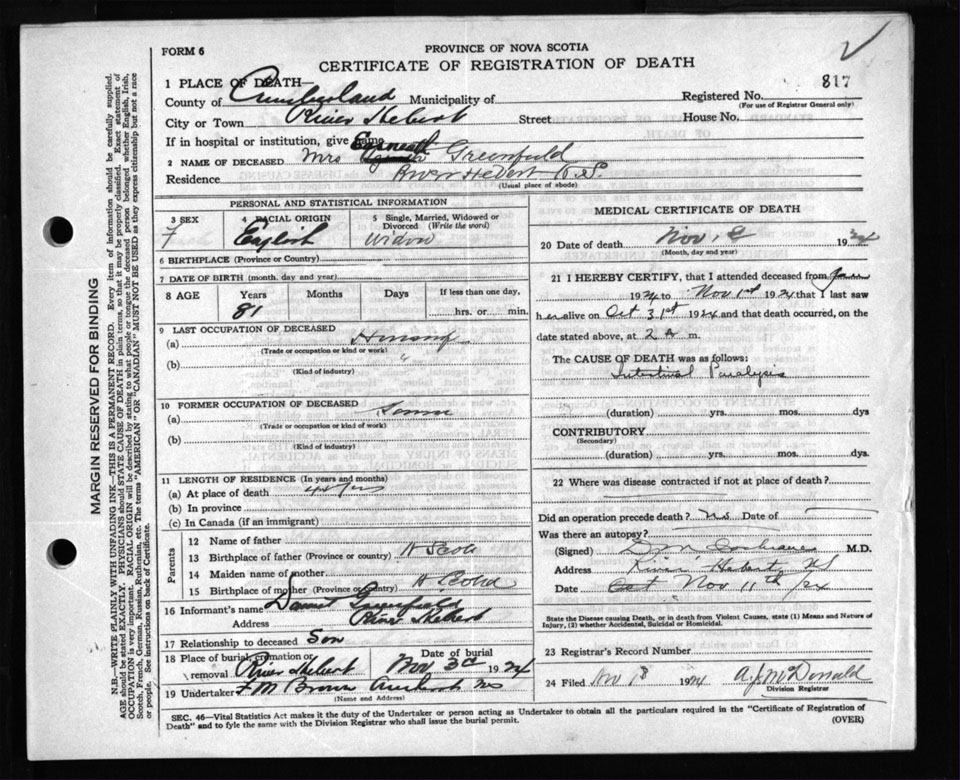 FORM 6
PROVINCE OF NOVA SCOTIA
CERTIFICATE OF REGISTRATION OF DEATH
817
1 PLACE OF DEATH—
County of Cumberland Municipality of
Registered No.
(For use of Registrar General only)
City or Town River Hebert Street House No.
If in hospital or institution, give name
2 NAME OF DECEASED Mrs Greenfield
Residence River Hebert N.S.
(Usual place of abode)
PERSONAL AND STATISTICAL INFORMATION
3 SEX
4 RACIAL ORIGIN
5 Single, Married, Widowed or Divorced (Write the word)
English
Widow
6 BIRTHPLACE (Province or Country)
7 DATE OF BIRTH (month, day and year)
8 AGE Years Months Days If less than one day,
81
hrs. or min.
9 LAST OCCUPATION OF DECEASED
(a)
(Trade or occupation or kind or work)
(b) "
(Kind of industry)
10 FORMER OCCUPATION OF DECEASED
(a)
(Trade or occupation or kind of work)
(b)
(Kind of industry)
11 LENGTH OF RESIDENCE (In years and months)
(a) At place of death
(b) In province
(c) In Canada (if an immigrant)
Parents
12 Name of father
13 Birthplace of father (Province or country) N Scotia
14 Maiden name of mother
15 Birthplace of mother (Province or Country) N Scotia
16 Informant's name Daniel Greenfield
Address River Hebert
17 Relationship to deceased Son
18 Place of burial, cremation or removal River Hebert
Date of burial
Nov 3rd 1924
19 Undertaker F M Brown Amherst NS
(Name and Address)
MEDICAL CERTIFICATE OF DEATH
20 Date of death Nov. 2 1924
(Month, day and year)
21 I HEREBY CERTIFY, that I attended deceased from
1924 to Nov 1st 1924 that I last saw
her alive on Oct 31st 1924 and that death occurred, on
date stated above, at 2 a m.
The CAUSE OF DEATH was as follows:
Intestinal Paralysis
(duration) yrs. mos. dys
CONTRIBUTORY
(Secondary)
(duration) yrs. mos. dys.
22 Where was disease contracted if not at place of death?
Did an operation precede death? No Date of
Was there an autopsy?
(Signed) Cochrane M.D.
Address River Hebert NS
Date Nov 11th/24
State the Disease causing Death, or in death from Violent Causes, state (1) Means and Nature of
Injury, (2) whether Accidental, Suicidal or Homicidal.
23 Registrar's Record Number
24 Filed Nov 18 1924 A J McDonald
Division Registrar
SEC. 46—Vital Statistics Act makes it the duty of the Undertaker or person acting as Undertaker to obtain all the particulars required in the "Certificate of Registration of
Death" and to fyle the same with the Division Registrar who shall issue the burial permit.
(OVER)
MARGIN RESERVED FOR BINDING
N.B.—WRITE PLAINLY WITH UNFADING INK—THIS IS A PERMANENT RECORD. Every item of information should be carefully supplied.
AGE should be stated EXACTLY. PHYSICIANS should STATE CAUSE OF DEATH in plain terms, so that it may be properly classified. Exact statement of
OCCUPATION is very important. RACIAL ORIGIN will be described by stating to what people or tongue the deceased person belonged whether English, Irish,
Scotch, French, German, Russian, Ruthenian, etc. The terms "AMERICAN" OR "CANADIAN" MUST NOT BE USED as they express citizenship but not a race
or people. See instructions on back of Certificate.